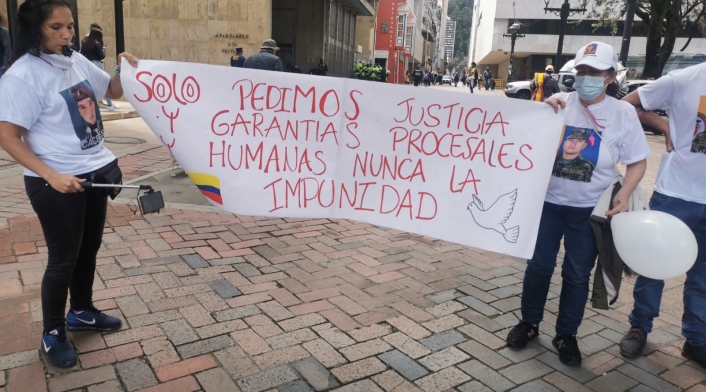 SOLO PEDIMOS JUSTICIA
Y GARANTIAS PROCESALES
HUMANAS NUNCA LA
IMPUNIDAD